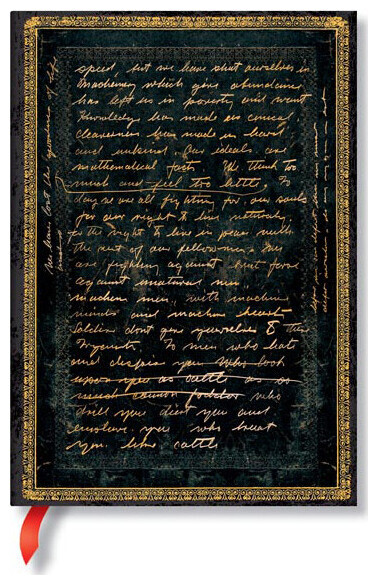 speed but we have shut ourselves in
Machinery which gives abundance
has left us in poverty and want
Knowledge has made us cynical
cleverness has made us hard
and unkind Our ideals are
mathematical facts We think too
much and feel too little, To
day we are all fighting for our souls
for our right to live naturally,
for the right to live in peace with
the rest of our fellow men. We
are fighting against brut force
against unatural men
machine men, with machine
minds and machine hearts
Soldiers dont give yourselves to these
Tyrants. To men who beat
and despise you who look
upon you as cattle as
much cannon fodder who
drill you diet you and
enslave you who treat
you like cattle
We have lost the goodness of life